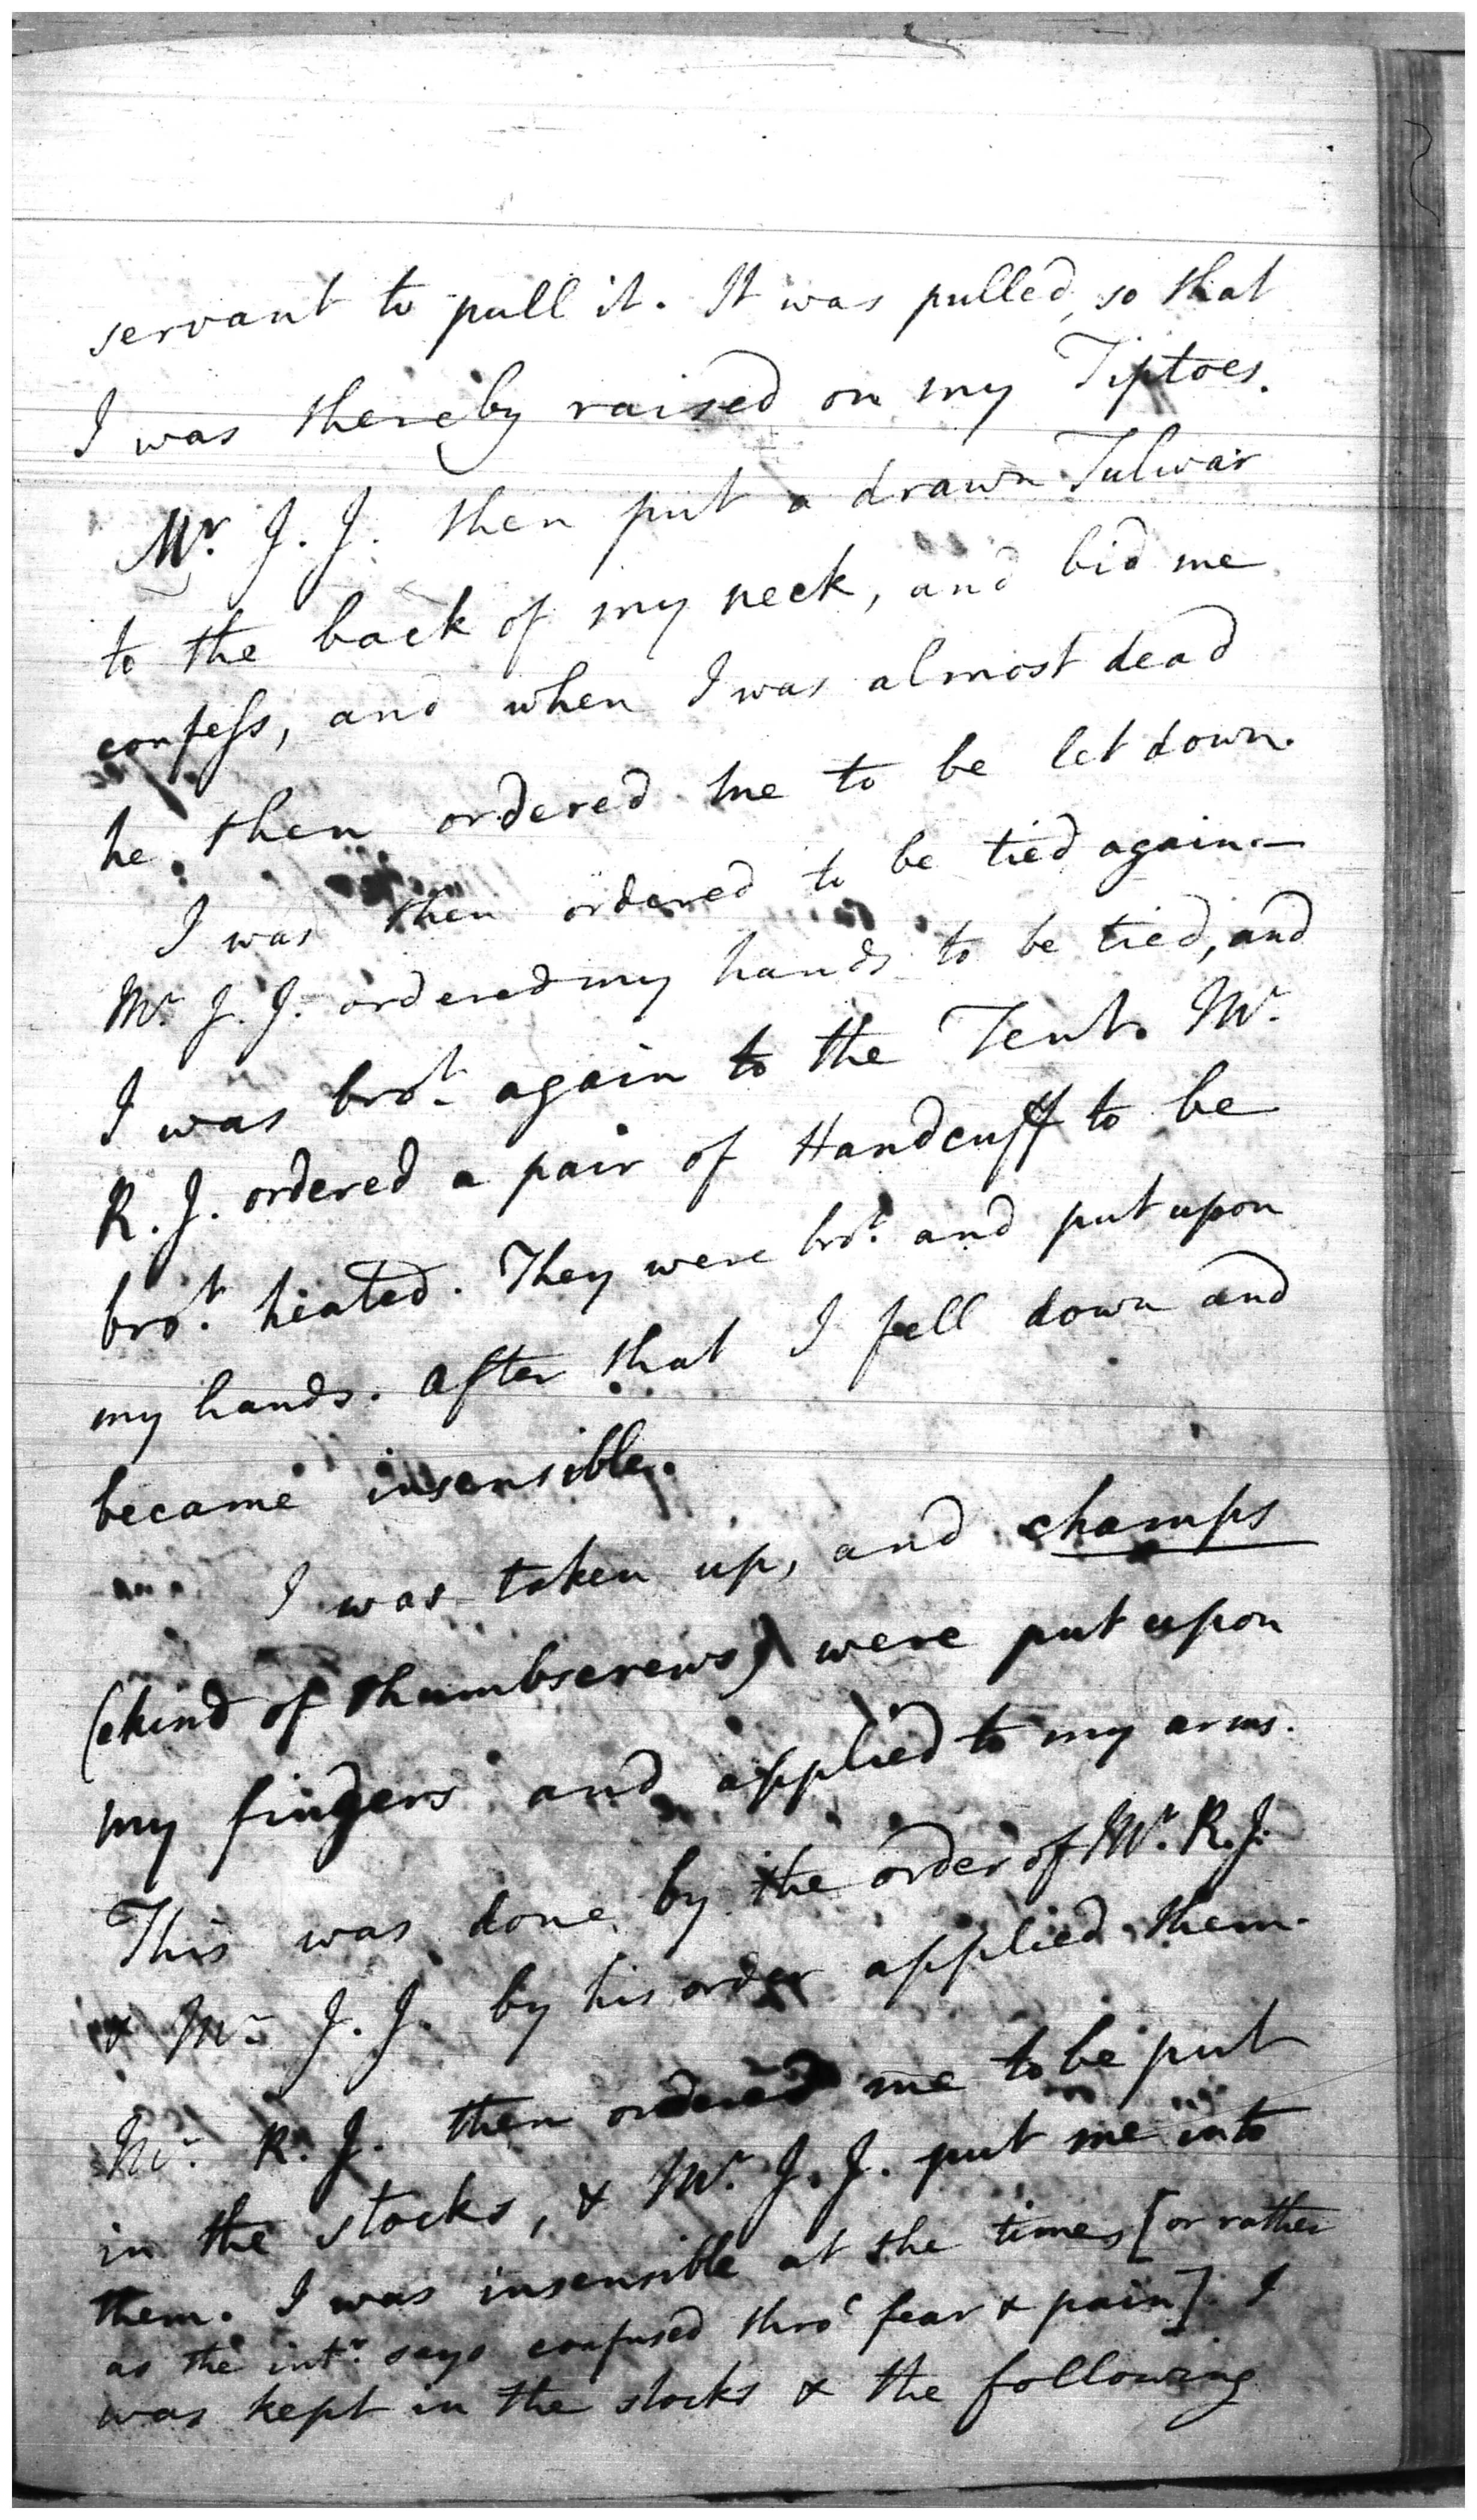 servant to pull it. It was pulled, so that
I was thereby raised on my Tiptoes.
Mr. J. J. then put a drawn Tulwar
to the back of my neck, and bid me
confess, and when I was almost dead
he then ordered me to be let down.
I was then ordered to be tied again.—
Mr. J. J. ordered my hands to be tied, and
I was brot. again to the Tent. Mr.
R. J. ordered a pair of Handcuff to be
brot. heated. They were brot. and put upon
my hands. After that I fell down and
became insensible.
I was taken up, and champs
(kind of thumbscrews) were put upon
my fingers and applied to my arms.
This was done by the order of Mr. R. J.
& Mr. J. J. by his order applied them.
Mr. R. J. then ordered me to be put
in the stocks, & Mr. J. J. put me into
them. I was insensible at the time, [or rather
as the intr. says confused thro' fear & pain]. I
was kept in the stocks & the following